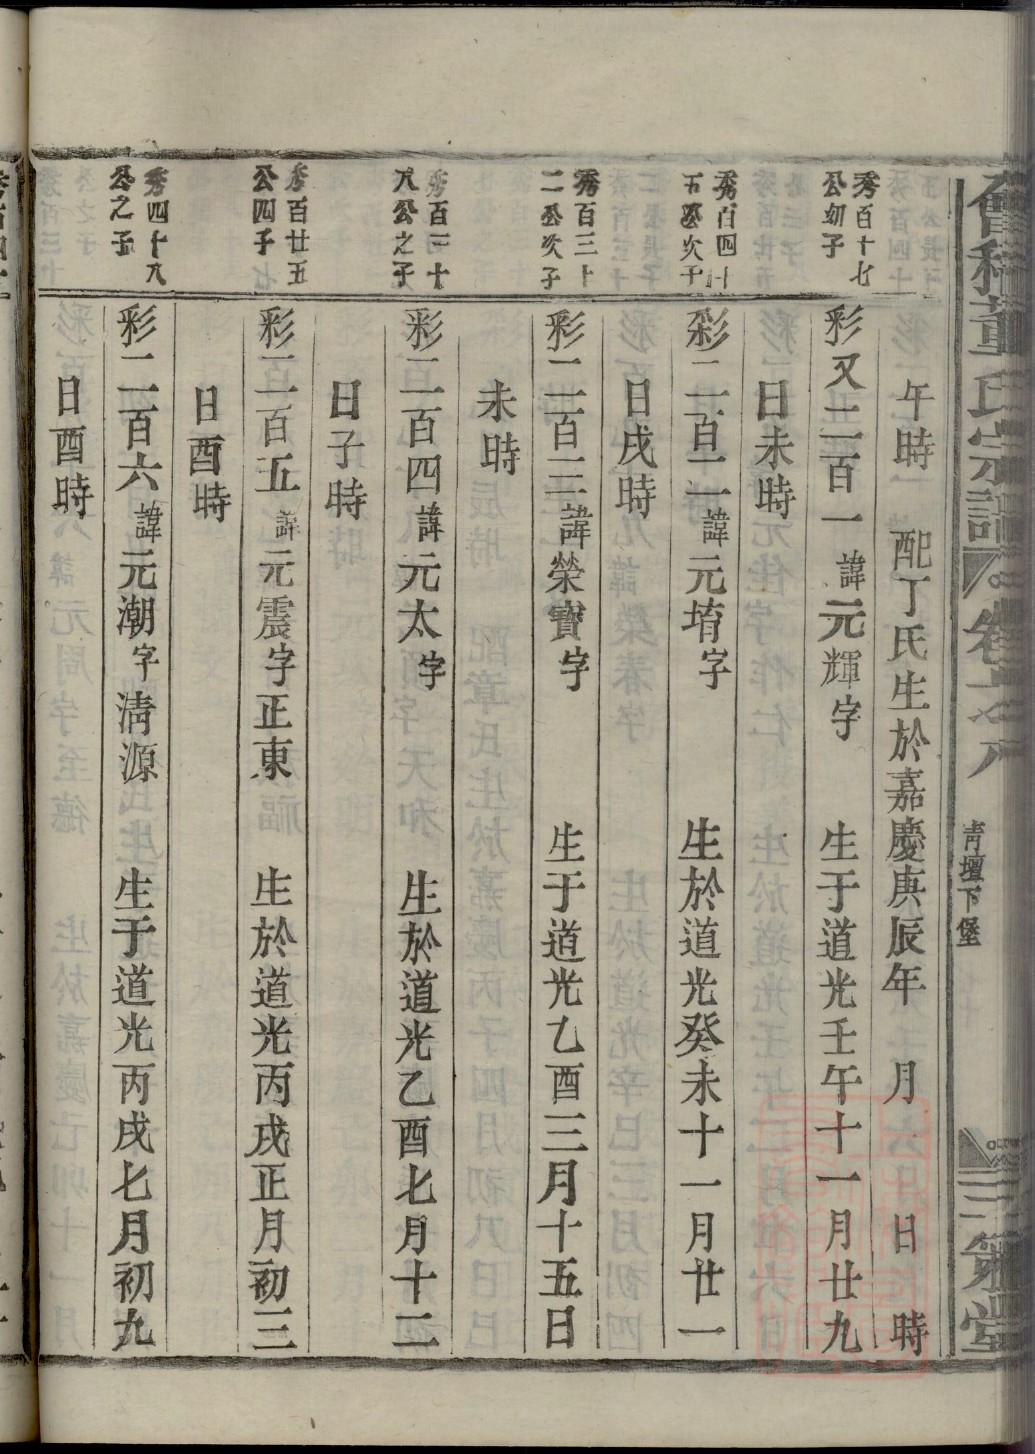 董氏宗譜
卷
靑壇下堡
三策堂
午時 配丁氏生於嘉慶庚辰年 月 日 時
秀百十七
公幼子
彩又二百一諱元輝字 生于道光壬午十一月廿九
日未時
秀百四十
五公次子
彩二百二諱元堉字 生於道光癸未十一月廿一
日戌時
秀百三十
二公次子
彩二百三諱榮寶字 生于道光乙酉三月十五日
未時
秀百二十
八公之子
彩二百四諱元太字 生於道光乙酉七月十二
日子時
秀百廿五
公四子
彩二百五諱元震字正東 生於道光丙戌正月初三
日酉時
秀四十八
公之子
彩二百六諱元潮字淸源 生于道光丙戌七月初九
日酉時